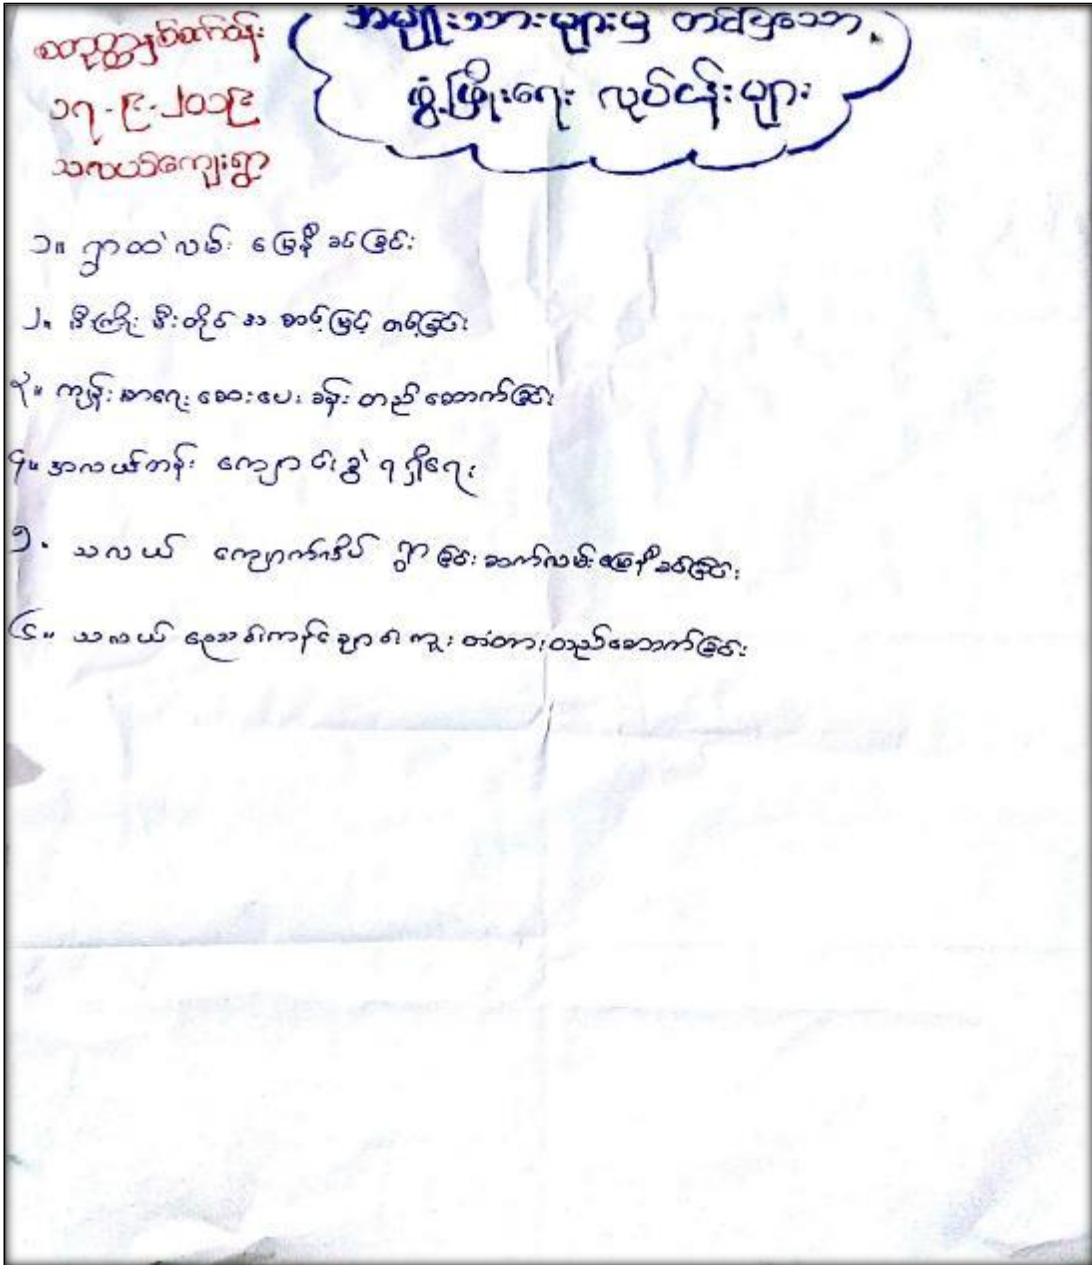 စတုတ္ထနှစ်စက်ဝန်း
၁၇-၉-၂၀၁၉
သလယ်ကျေးရွာ
အမျိုးသားများမှ တင်ပြသော
ဖွံ့ဖြိုးရေး လုပ်ငန်းများ
၁။ ရွာထဲလမ်း မြေနီခင်းခြင်း
၂။ မီးကြိုး မီးတိုင် အစားမြင့် တင်ခြင်း
၃။ ကျန်းမာရေး ဆေးပေးခန်း တည်ဆောက်ခြင်း
၄။ အလယ်တန်း ကျောင်းခွဲ ရရှိရေး
၅။ သလယ် ကျောက်အိပ် ရွာချင်းဆက်လမ်းမြေနီခင်းခြင်း
၆။ သလယ် ချောင်းကူးတံတားတည်ဆောက်ခြင်း